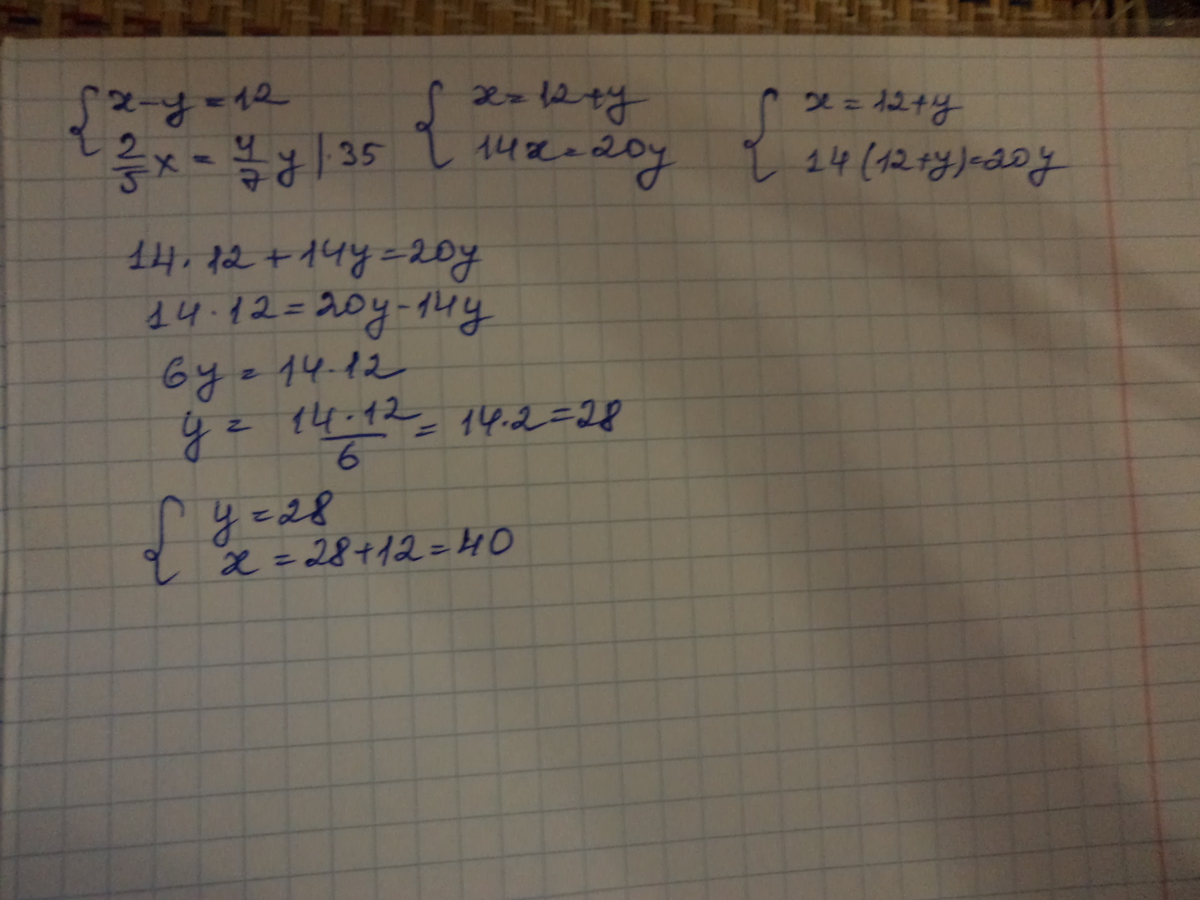 { x-y=12 { x=12+y { x=12+y
2/5 x = 4/7 y |·35 14x=20y 14(12+y)=20y
14·12+14y=20y
14·12=20y-14y
6y=14·12
y = 14·12/6 = 14·2=28
{ y=28
x=28+12=40